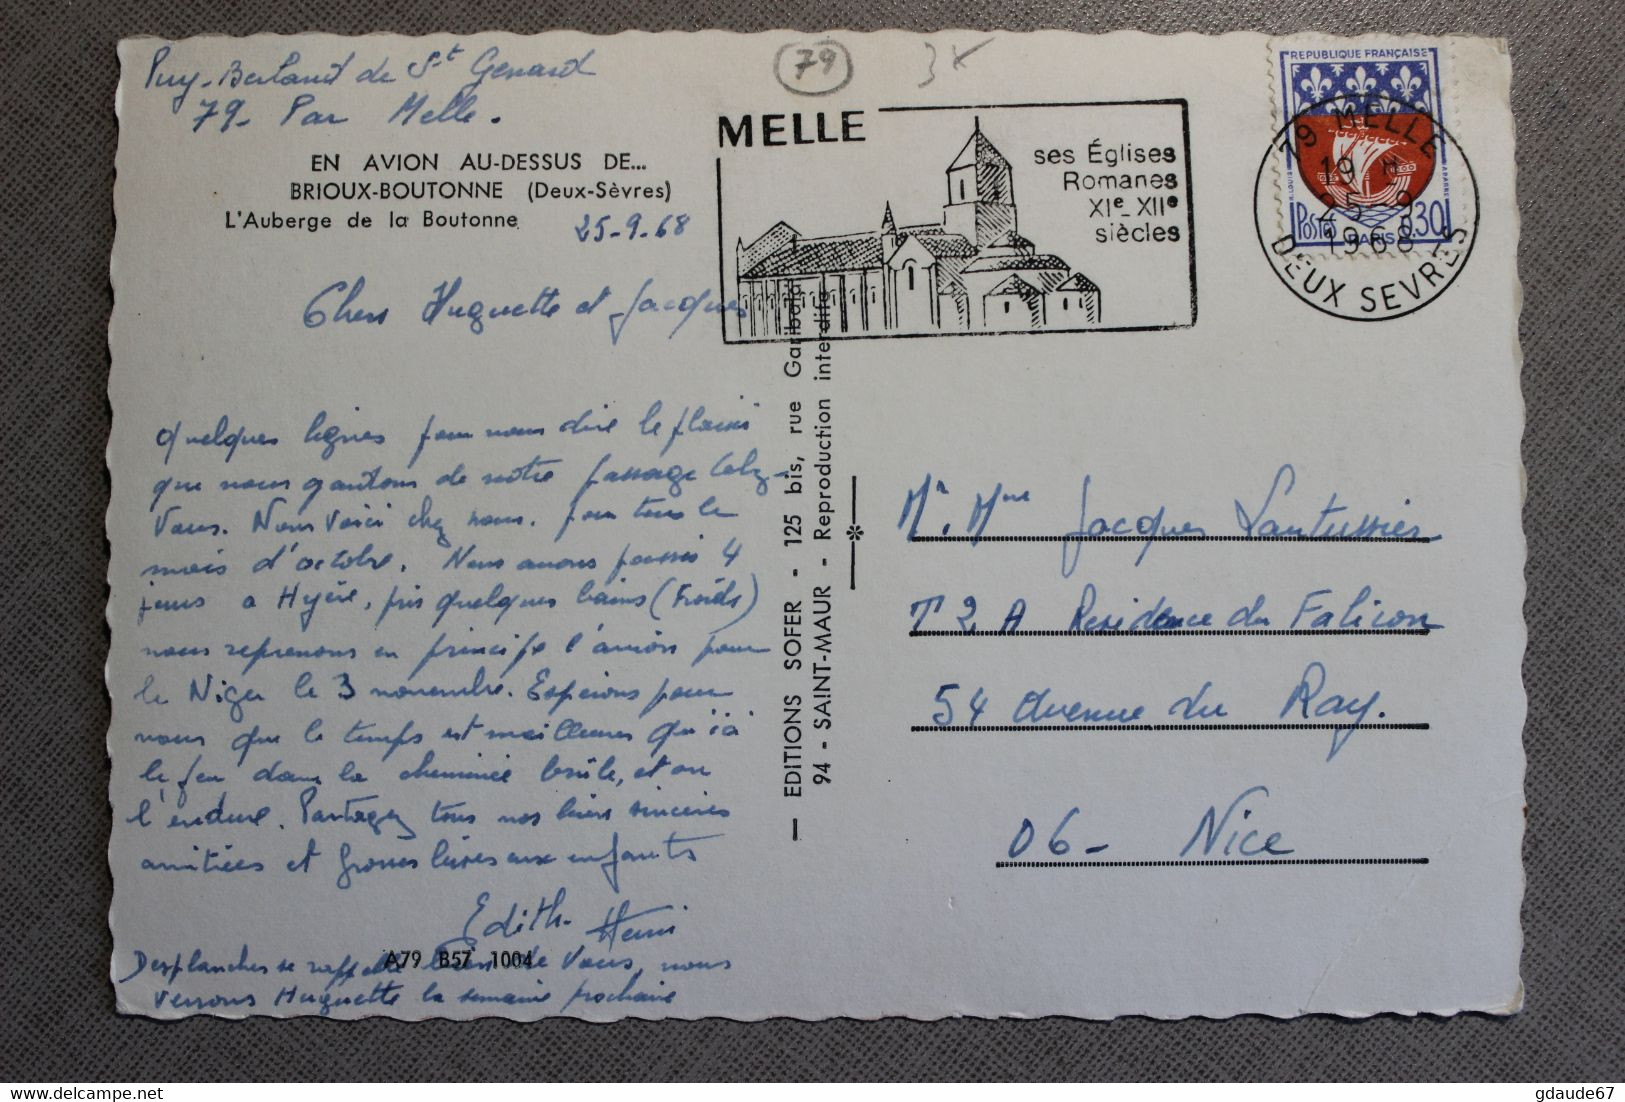 Puy-Berland de St Genard
79- Par Melle.
EN AVION AU-DESSUS DE...
BRIOUX-BOUTONNE (Deux-Sèvres)
L'Auberge de la Boutonne
25-9-68
Chers Huguette et Jacques
quelques lignes pour vous dire le plaisir
que nous gardons de notre passage chez-
vous. Nous voici chez nous. pour tous le
mois d'octobre. Nous avons passés 4
jours a Hyère, pris quelques bains (Froids)
nous reprenons en principe l'avion pour
le Niger le 3 novembre. Espérons pour
vous que le temps est meilleures qu'içi
le feu dans la cheminée brûle, et on
l'endure. Partagez tous nos biens sincères
amitiées et grosses bises aux enfants
Edith- Henri
A79 B57 1004
Desplanches se rappelle bien de Vous, nous
verrons Huguette la semaine prochaine
79
3x
MELLE
ses Églises
Romanes
XIe-XIIe
siècles
REPUBLIQUE FRANÇAISE
Postes
0.30
PARIS
79 MELLE
19 H
25-9
1968
DEUX SEVRES
— EDITIONS SOFER - 125 bis, rue Garibaldi
94 - SAINT-MAUR - Reproduction interdite
Mr. Mme Jacques Lantussier
T2A Résidence du Falicon
54 Avenue du Ray.
06- Nice
gdaude67